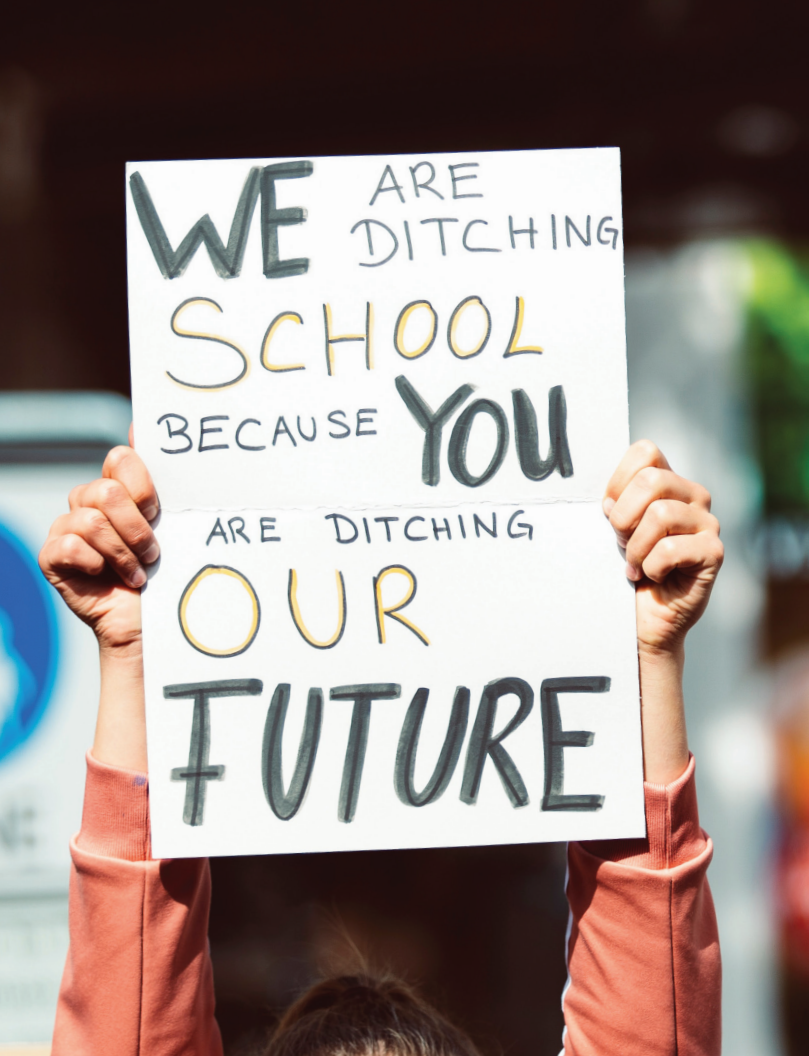 WE ARE
DITCHING
SCHOOL
BECAUSE YOU
ARE DITCHING
OUR
FUTURE